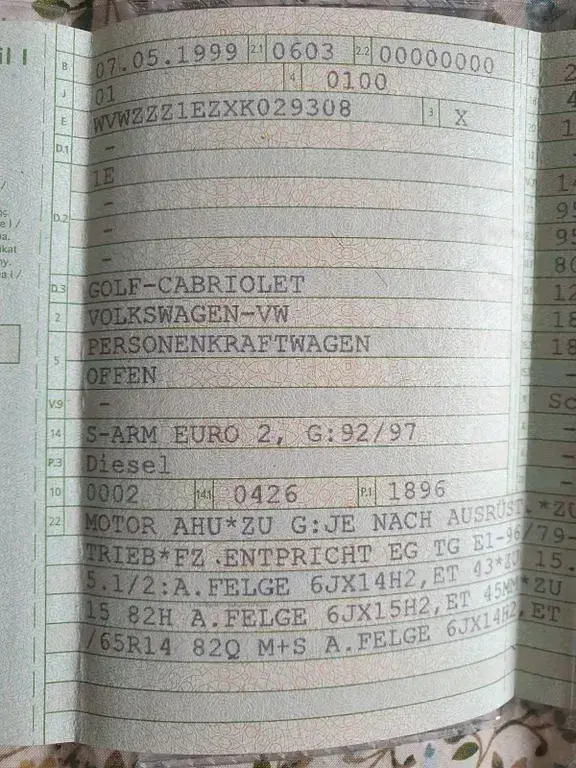 il I
B 07.05.1999 2.1 0603 2.2 00000000
J 01 4 0100
E WVWZZZ1EZXK029308 3 X
D.1 -
1E
D.2 -
-
-
D.3 GOLF-CABRIOLET
2 VOLKSWAGEN-VW
5 PERSONENKRAFTWAGEN
OFFEN
V.9 -
14 S-ARM EURO 2, G:92/97
P.3 Diesel
10 0002 14.1 0426 P.1 1896
22 MOTOR AHU*ZU G:JE NACH AUSRÜST.*ZU
TRIEB*FZ.ENTPRICHT EG TG E1-96/79-
5.1/2:A.FELGE 6JX14H2,ET 43*ZU 15.
15 82H A.FELGE 6JX15H2,ET 45MM*ZU
/65R14 82Q M+S A.FELGE 6JX14H2,ET